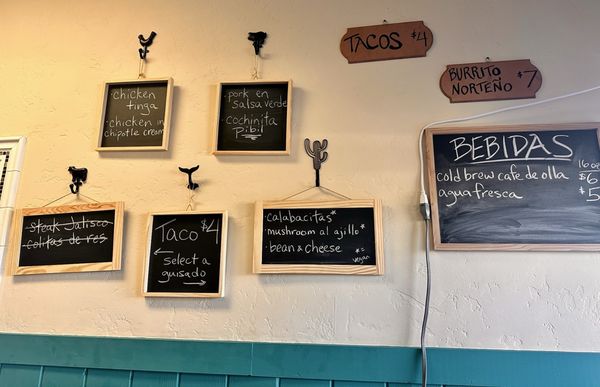 · chicken
tinga
· chicken in
chipotle cream
· pork en
Salsa verde
· cochinita
Pibil
TACOS $4
BURRITO $7
NORTEÑO
· Steak Jalisco
· colitas de res
Taco $4
select a
guisado
calabacitas*
· mushroom al ajillo*
· bean & cheese
*=
vegan
BEBIDAS
16 oz
cold brew cafe de olla $6
agua fresca $5